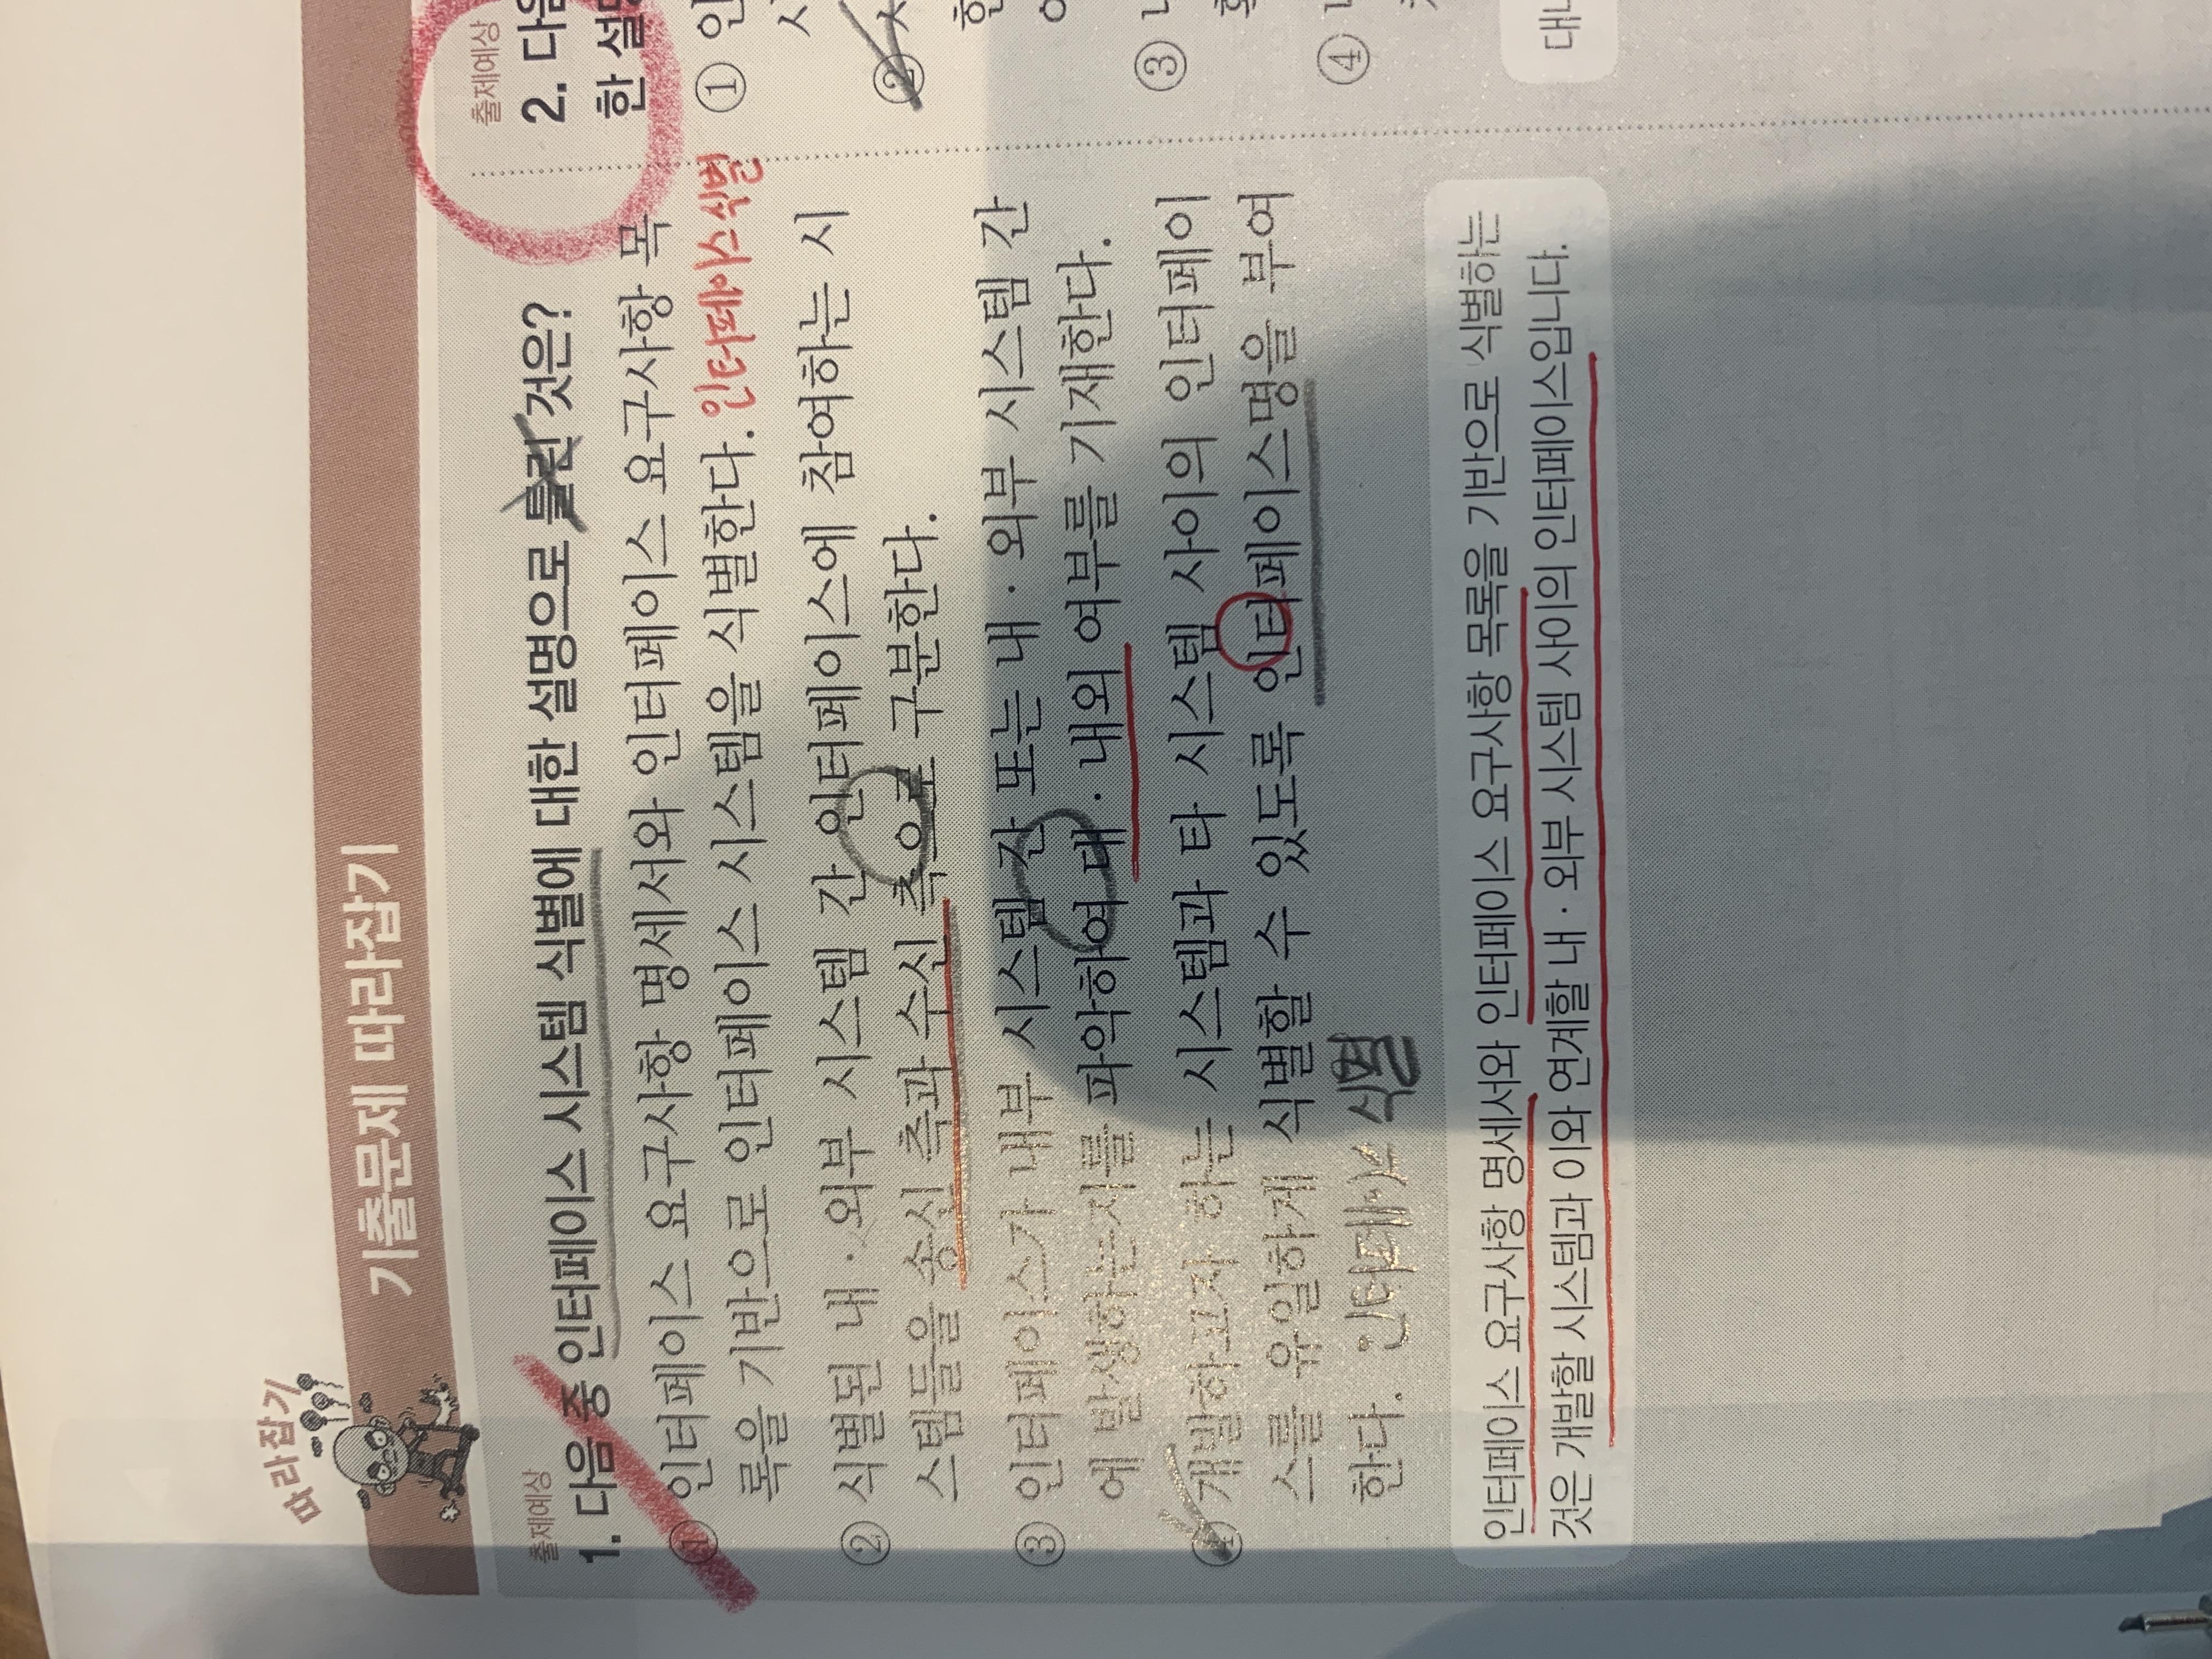 따라잡기
기출문제 따라잡기
출제예상
1. 다음 중 인터페이스 시스템 식별에 대한 설명으로 틀린 것은?
① 인터페이스 요구사항 명세서와 인터페이스 요구사항 목
록을 기반으로 인터페이스 시스템을 식별한다. 인터페이스 식별
② 식별된 내·외부 시스템 간 인터페이스에 참여하는 시
스템들을 송신 측과 수신 측으로 구분한다.
③ 인터페이스가 내부 시스템 간 또는 내·외부 시스템 간
에 발생하는지를 파악하여 대·내외 여부를 기재한다.
④ 개발하고자 하는 시스템과 타 시스템 사이의 인터페이
스를 유일하게 식별할 수 있도록 인터페이스명을 부여
한다. 인터페이스 식별
인터페이스 요구사항 명세서와 인터페이스 요구사항 목록을 기반으로 식별하는
것은 개발할 시스템과 이와 연계할 내·외부 시스템 사이의 인터페이스입니다.
출제예상
2. 다음
한 설명
① 인
시
②
한
③
④
대내